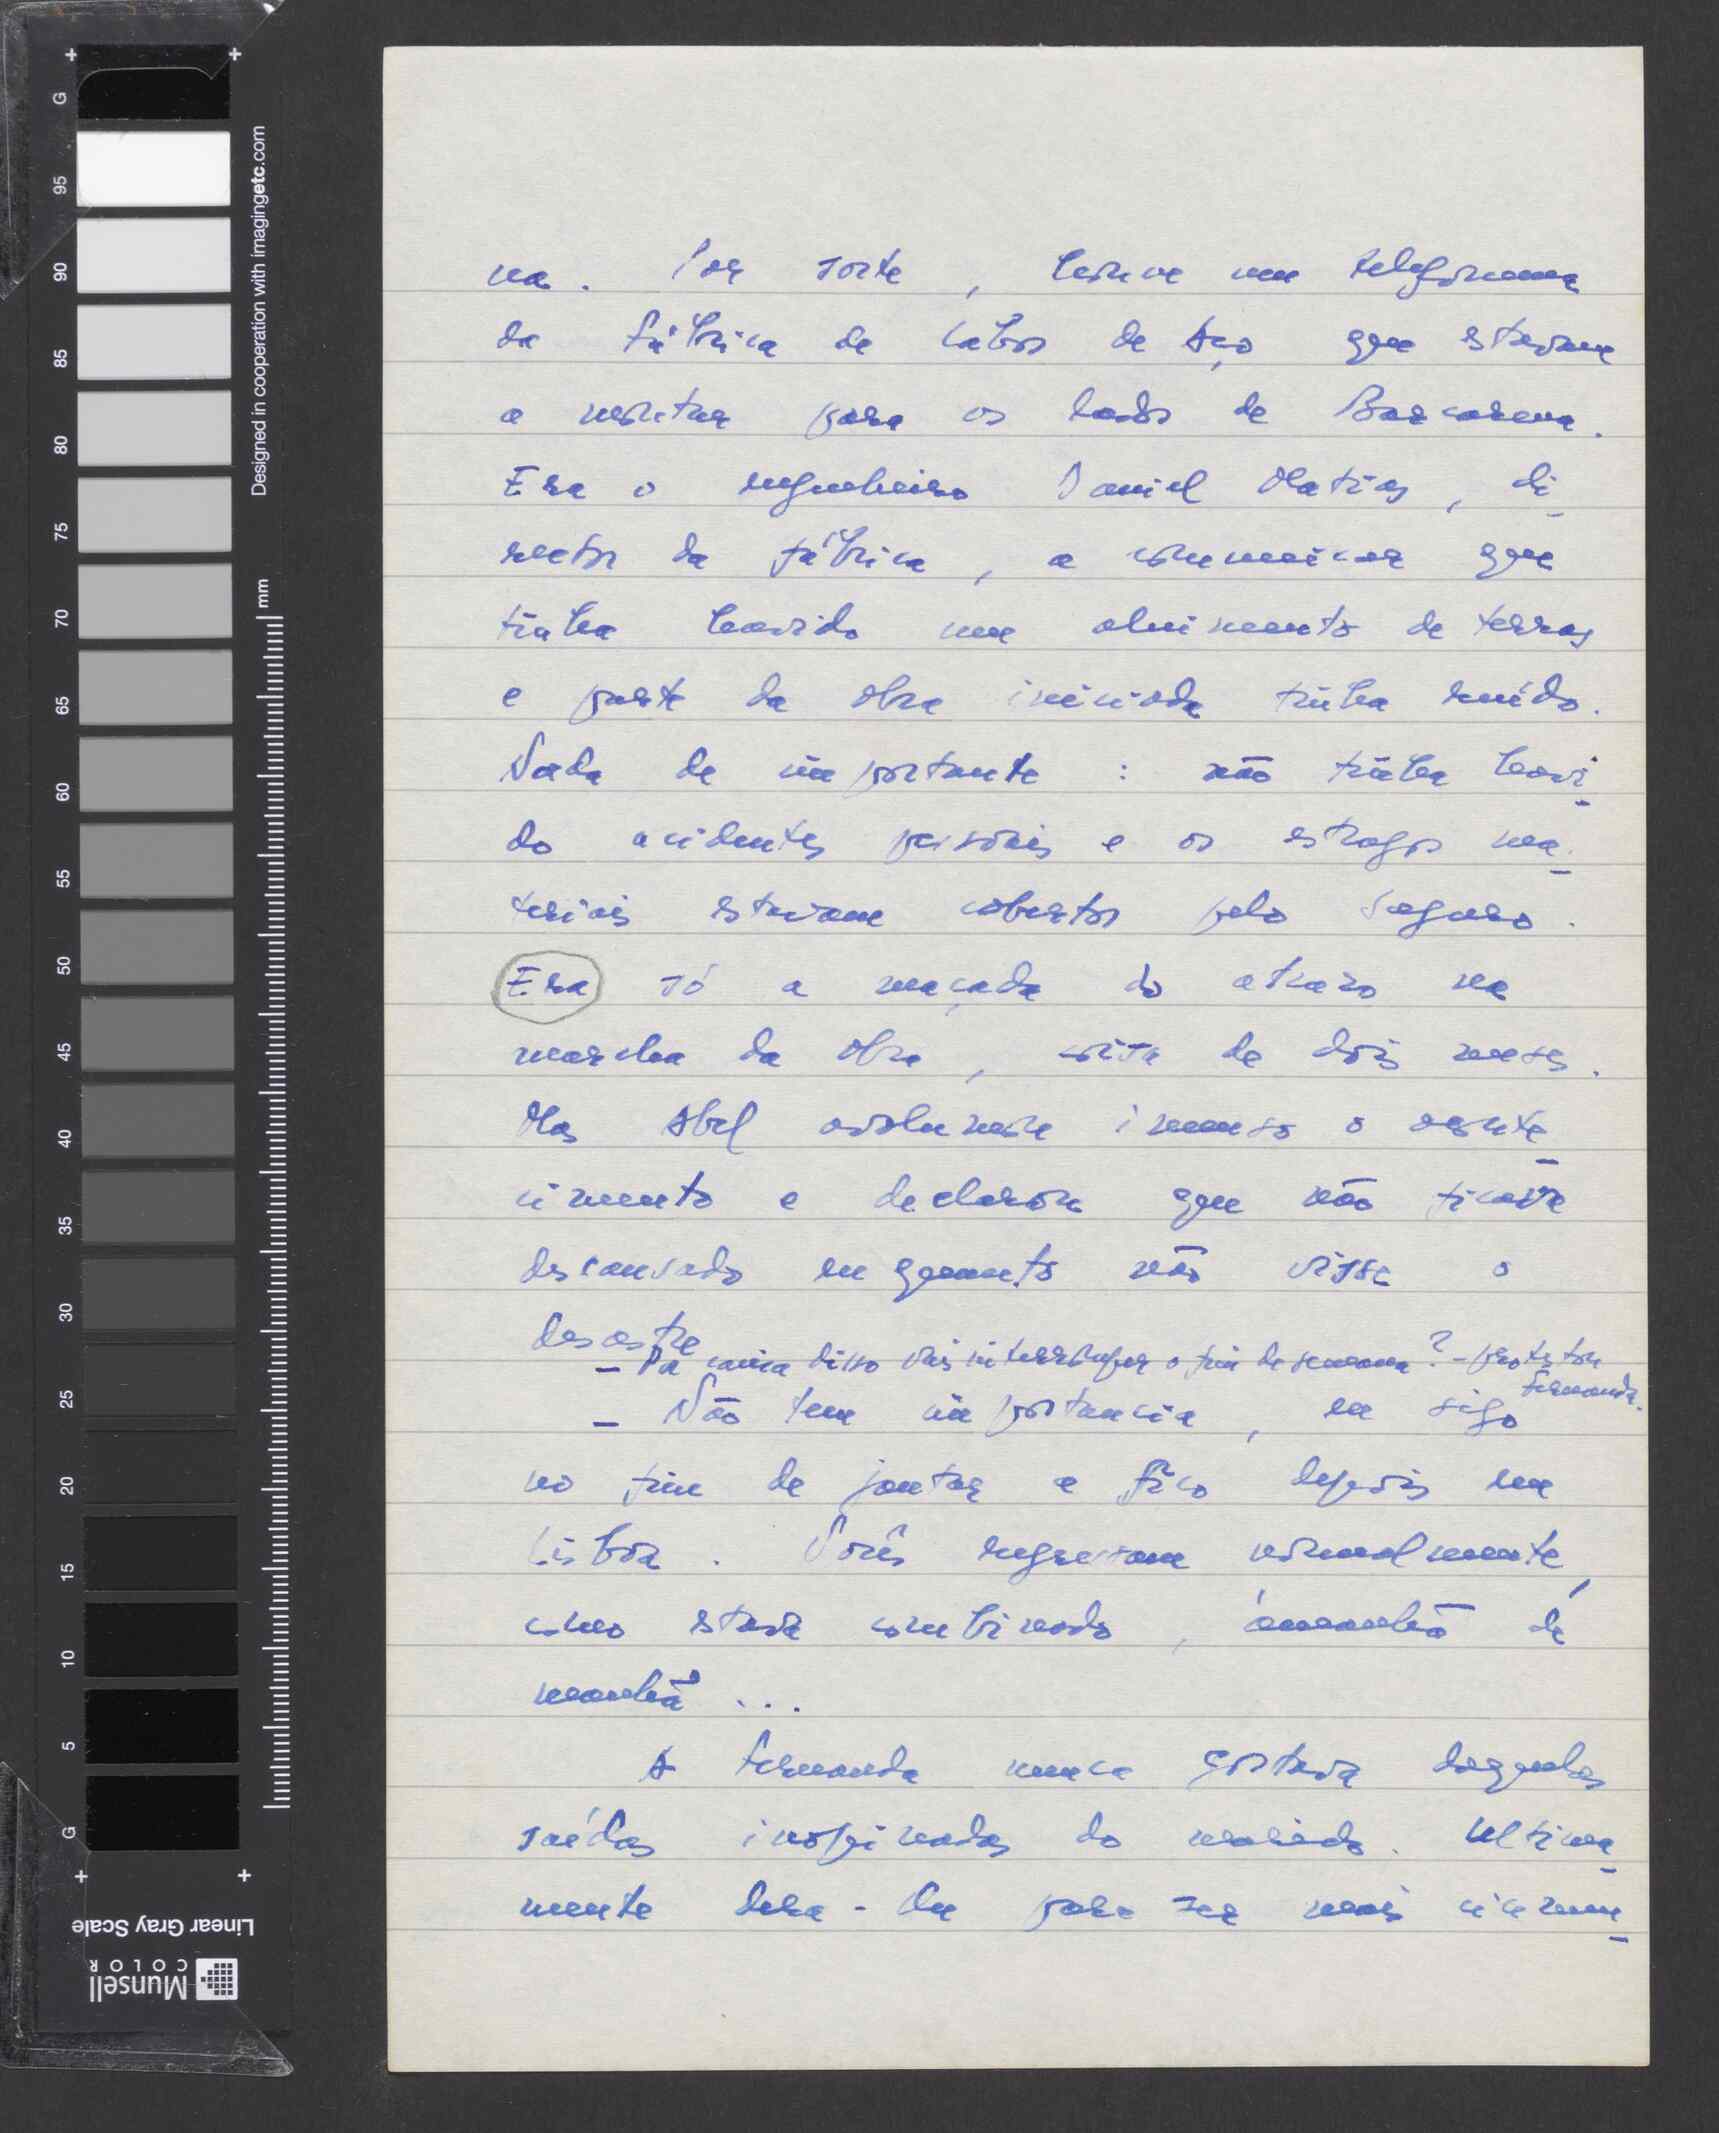 na. Por sorte, houve um telefonema
da fábrica de cabos de Aço que estavam
a montar para os lados de Barcarena.
Era o engenheiro Daniel Matias, di-
rector da fábrica, a comunicar que
tinha havido um aluimento de terras
e parte da obra iniciada tinha ruído.
Nada de importante: não tinha havi-
do acidentes pessoais e os estragos ma-
teriais estavam cobertos pelo seguro.
Era só a maçada do atraso na
marcha da obra, coisa de dois meses.
Mas Abel avolumou imenso o aconte-
cimento e declarou que não ficava
descansado enquanto não visse o
desastre
– Por causa disso vais interromper o fim de semana? – protestou
Fernanda.
– Não tem importancia, eu sigo
no fim de jantar e fico depois em
Lisboa. Vocês regressam normalmente,
como estava combinado, àmanhã de
manhã...
A Fernanda nunca gostava daquelas
saídas inopinadas do marido. Ultima-
mente dera-lhe para ser mais ciumen-
G
95
90
85
80
75
70
65
60
55
50
45
40
35
30
25
20
15
10
5
G
Designed in cooperation with imagingetc.com
mm
Linear Gray Scale
Munsell
COLOR